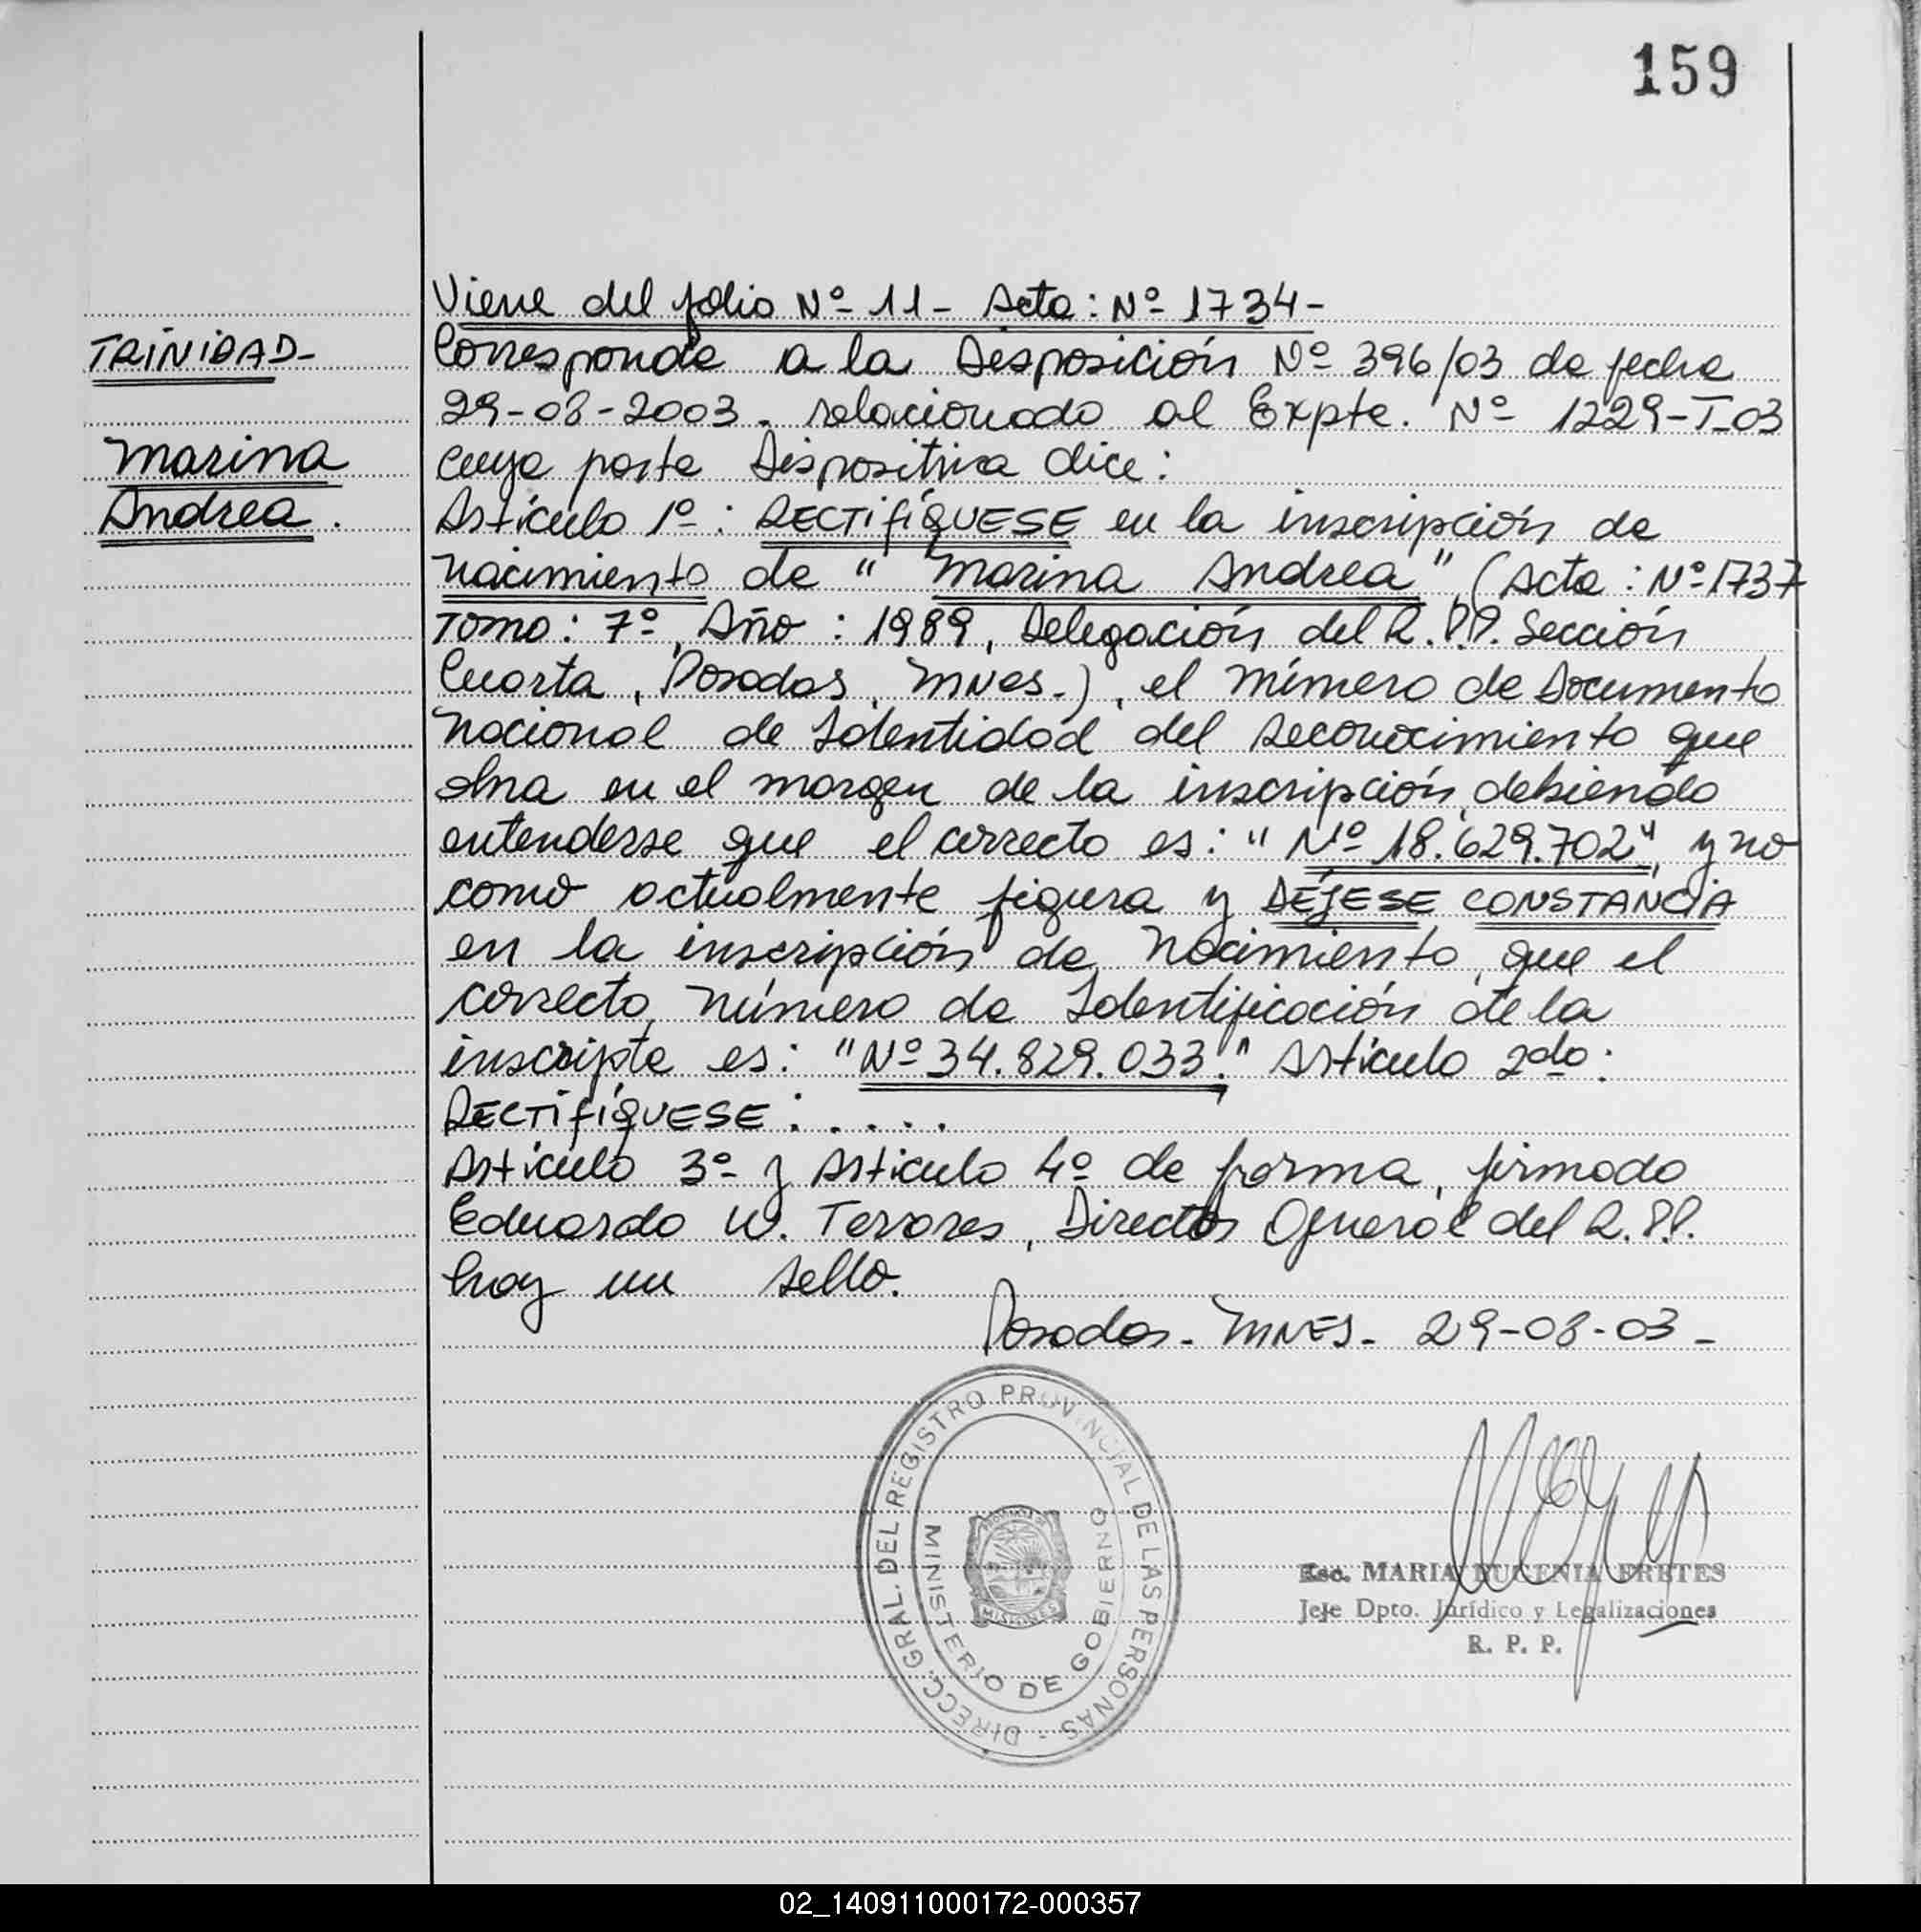 159
Viene del folio Nº 11 - Acta: Nº 1734 -
TRINIDAD -
Corresponde a la Disposición Nº 396/03 de fecha
29-08-2003. relacionado al Expte. Nº 1229-T-03
Marina
cuya parte Dispositiva dice:
Andrea.
Artículo 1º: RECTIFÍQUESE en la inscripción de
nacimiento de "Marina Andrea", (Acta: Nº 1737
Tomo: 7º, Año: 1989, Delegación del R.P.P. Sección
Cuarta, Posadas, Mnes.), el número de Documento
Nacional de Identidad del reconocimiento que
obra en el margen de la inscripción, debiendo
entenderse que el correcto es: "Nº 18.629.702" y no
como actualmente figura y DÉJESE CONSTANCIA
en la inscripción de Nacimiento, que el
correcto número de Identificación de la
inscripta es: "Nº 34.829.033." Artículo 2do:
RECTIFÍQUESE: . . . . .
Artículo 3º y Artículo 4º de forma, firmado
Eduardo W. Terrares, Director General del R.P.P.
hay un sello.
Posadas - MNES - 29-08-03 -
DIRECC. GRAL. DEL REGISTRO PROVINCIAL DE LAS PERSONAS -
MINISTERIO DE GOBIERNO
PROVINCIA DE
MISIONES
Esc. MARIA EUGENIA FRETES
Jefe Dpto. Jurídico y Legalizaciones
R. P. P.
02_140911000172-000357